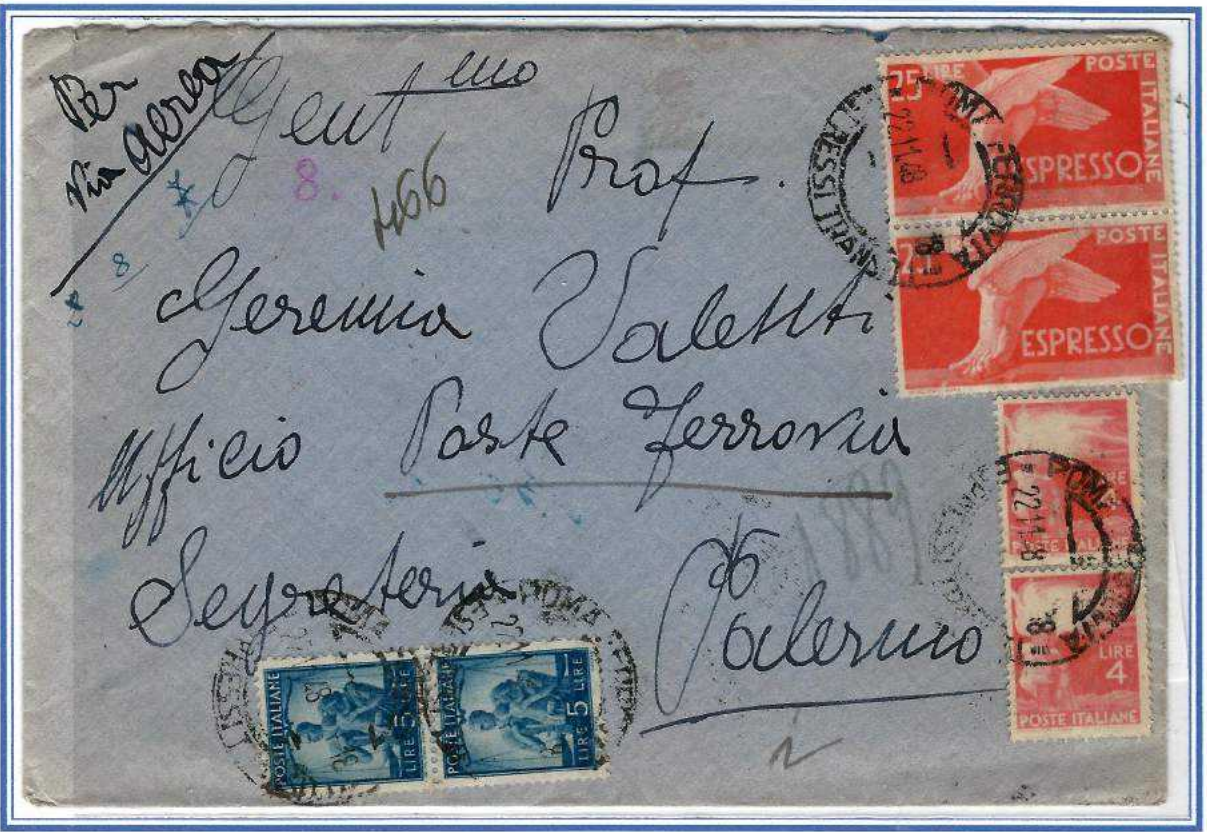 Per
via aerea
Gent mo
Prof.
8.
466
Geremia Valenti
Ufficio Poste Ferrovia
Segreteria
Palermo
25 LIRE POSTE ITALIANE
ESPRESSO
POSTE ITALIANE
ESPRESSO
ROMA FERROVIA
22.11.48
LIRE
4
POSTE ITALIANE
LIRE
4
POSTE ITALIANE
ROMA
22.11.48
POSTE ITALIANE
LIRE 5 LIRE
POSTE ITALIANE
LIRE 5 LIRE
ROMA